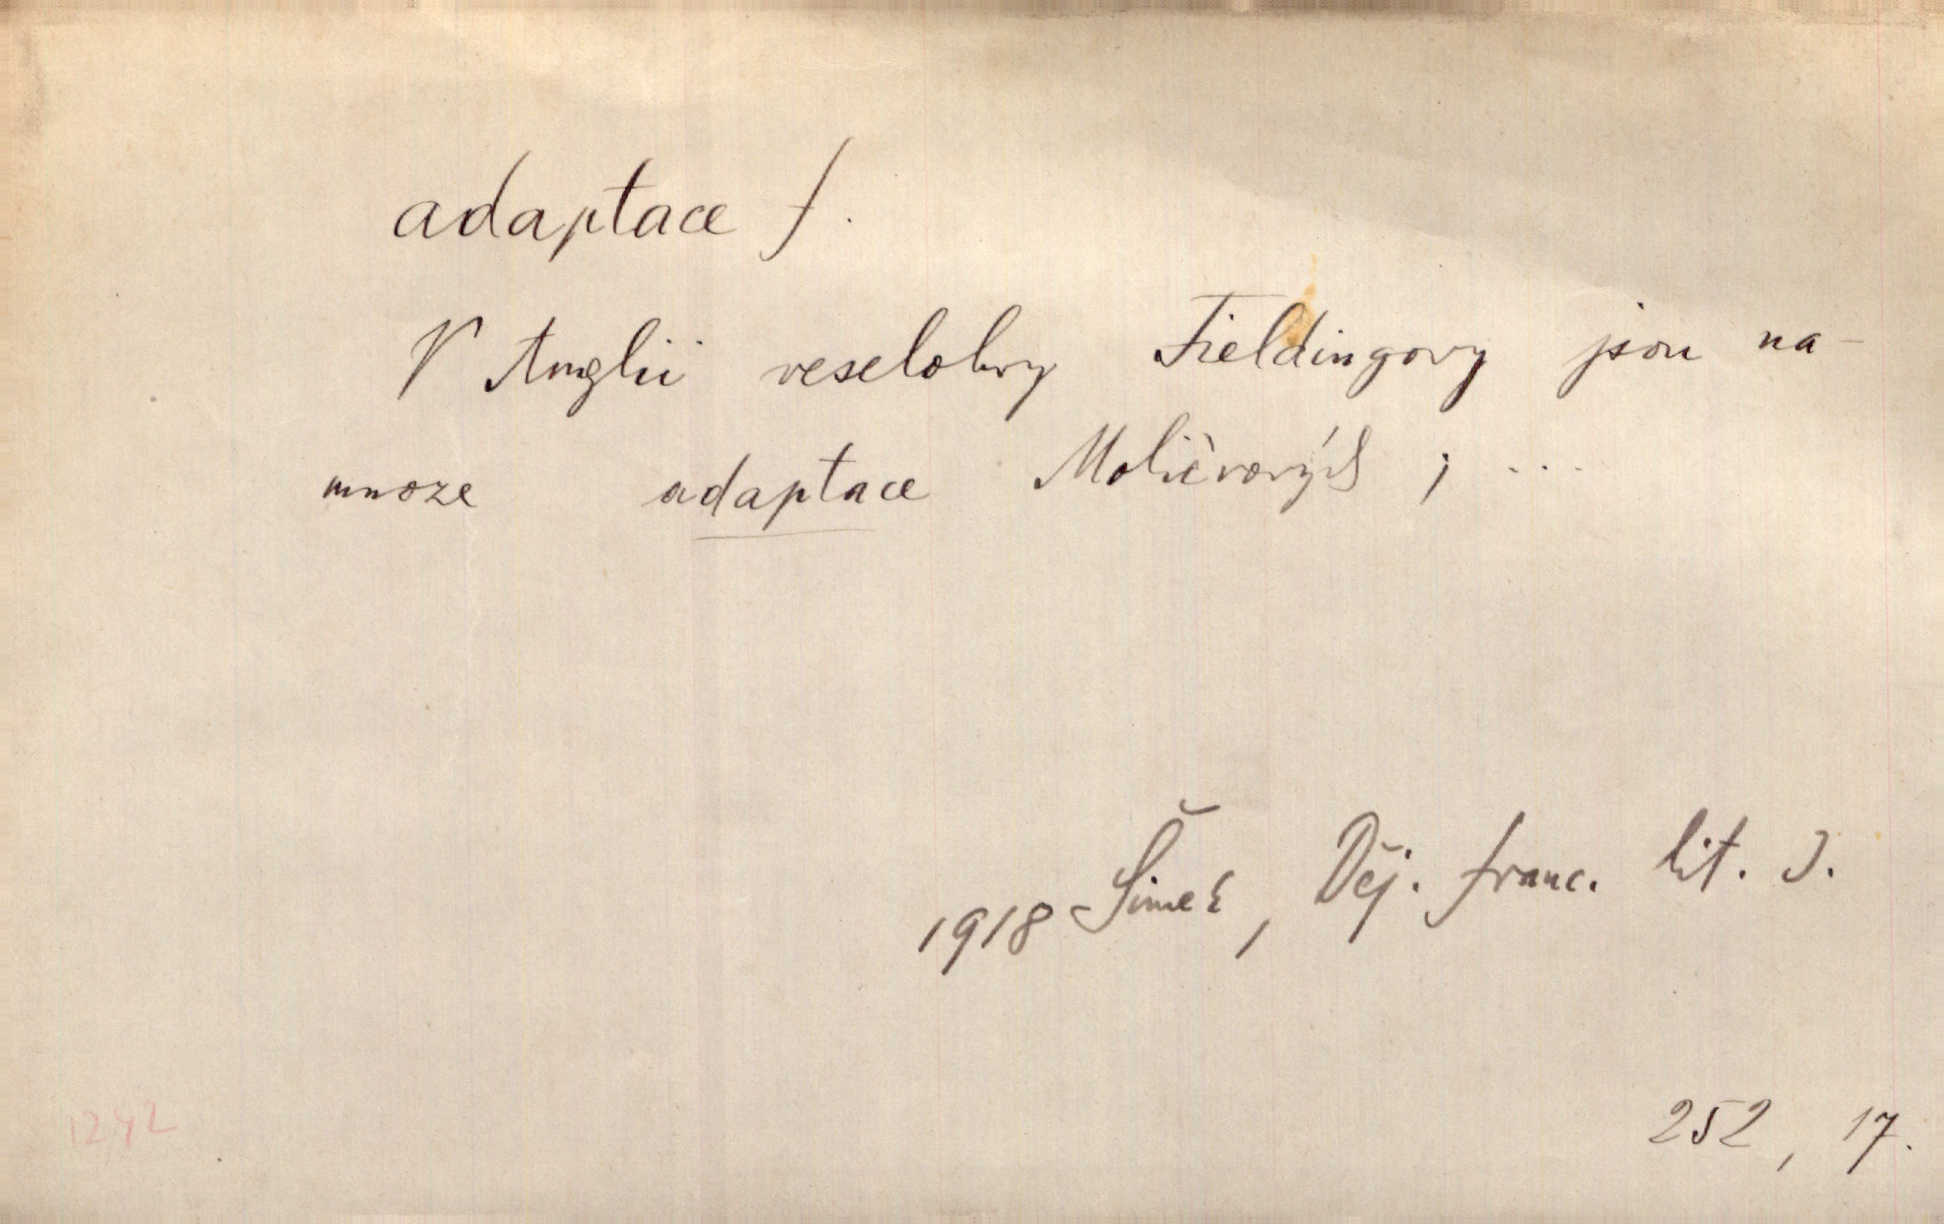 adaptace f.
V Anglii veselohry Fieldingovy jsou na-
mnoze adaptace Molièrových ; ...
1918 Šimek, Děj. franc. lit. I.
252, 17.
1242